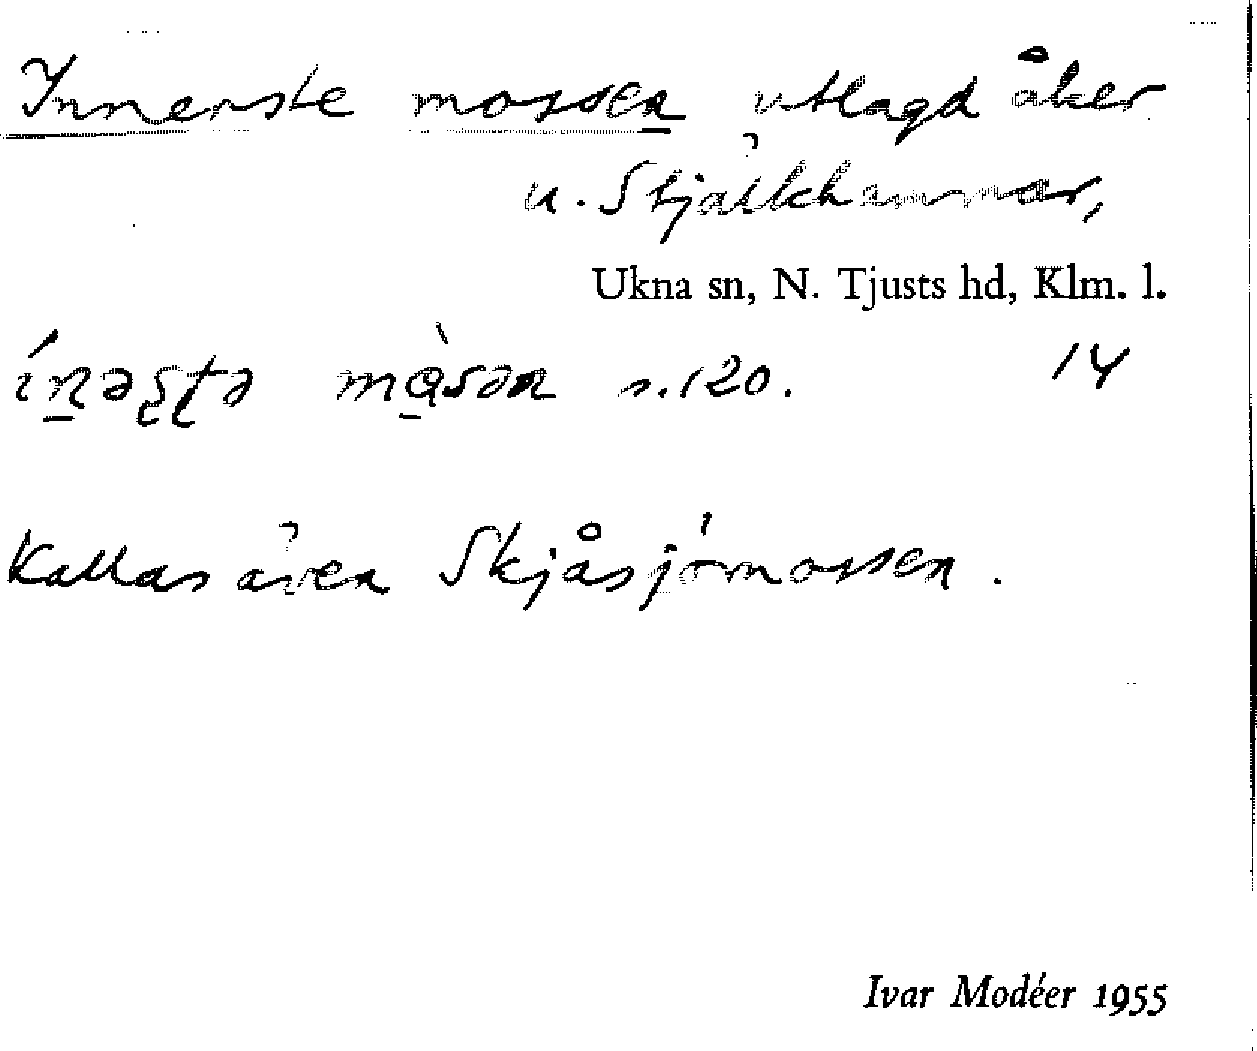 Innerste mossen utlagd åker
u. Skjälkhammar,
Ukna sn, N. Tjusts hd, Klm. l.
s. 120. 14
Kallas även Skjåsjömossen.
Ivar Modéer 1955